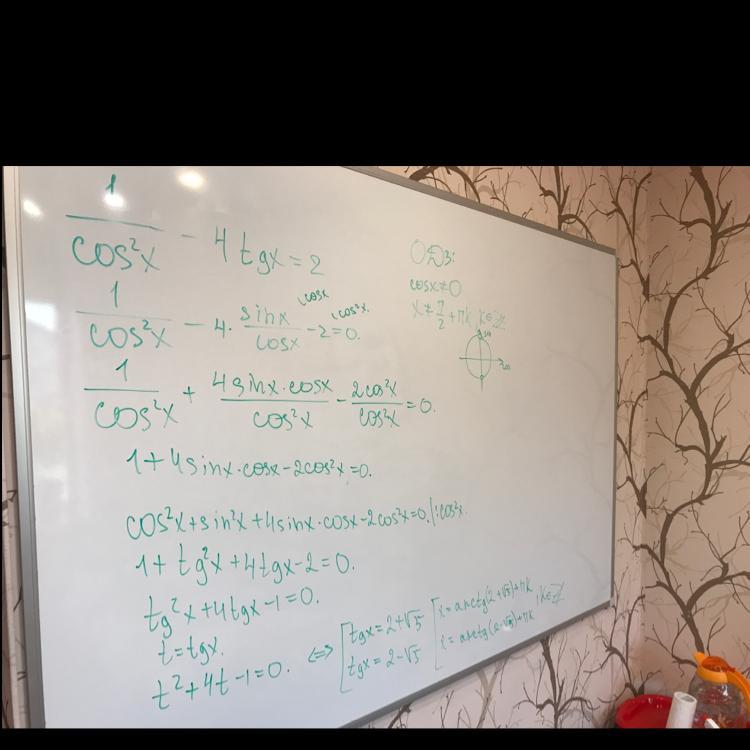 1/cos²x - 4tgx = 2
1/cos²x - 4·sinx/cosx - 2 = 0. (cosx (cos²x.
1/cos²x + 4sinx·cosx/cos²x - 2cos²x/cos²x = 0.
1+4sinx·cosx-2cos²x=0.
cos²x+sin²x+4sinx·cosx-2cos²x=0. |:cos²x.
1+tg²x+4tgx-2=0.
tg²x+4tgx-1=0.
t=tgx.
t²+4t-1=0. ⇔ [tgx=2+√5
tgx=2-√5
[x=arctg(2+√5)+πk
x=arctg(2-√5)+πk , k∈Z
ОДЗ:
cosx≠0
x≠π/2+πk, k∈Z